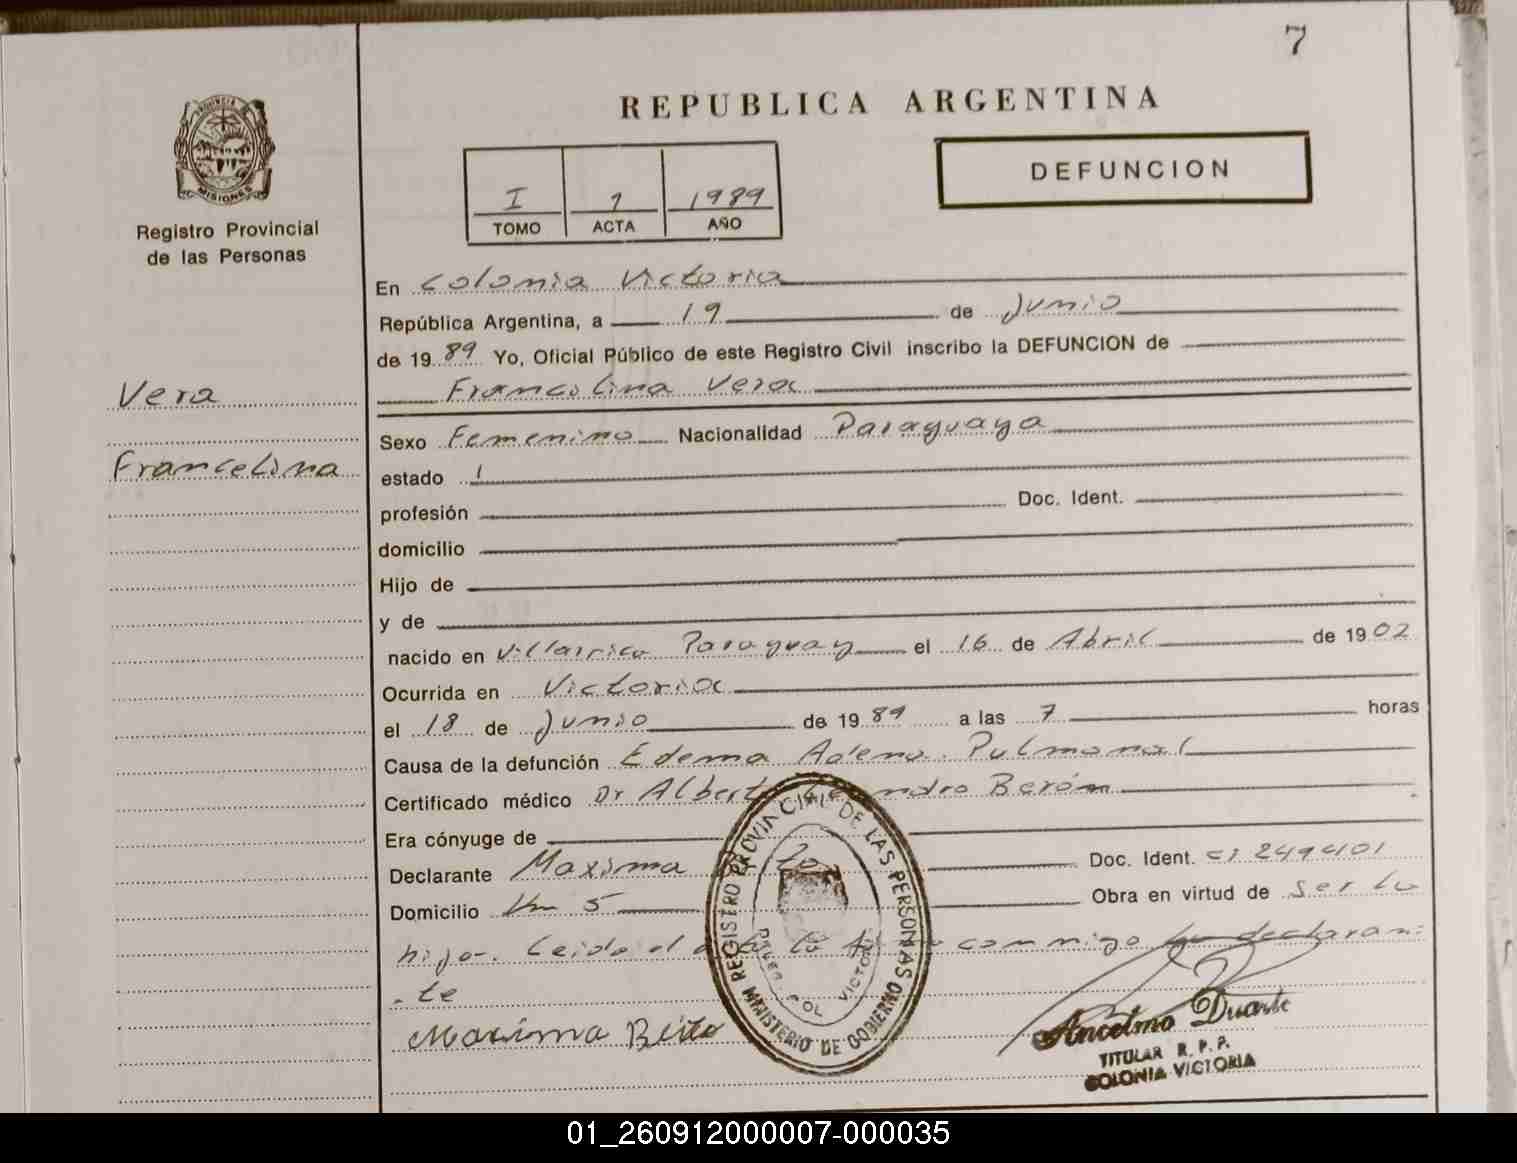 7
REPUBLICA ARGENTINA
PROVINCIA DE
MISIONES
Registro Provincial
de las Personas
I 7 1989
TOMO ACTA AÑO
DEFUNCION
En Colonia Victoria
República Argentina, a 19 de Junio
de 1989 Yo, Oficial Público de este Registro Civil inscribo la DEFUNCION de
Vera
Francolina Vera
Sexo Femenino Nacionalidad Paraguaya
Francelina
estado
profesión Doc. Ident.
domicilio
Hijo de
y de
nacido en Villarrica Paraguay el 16 de Abril de 1902
Ocurrida en Victoria
el 18 de Junio de 1989 a las 7 horas
Causa de la defunción Edema Pulmonal
Certificado médico Dr Alberto Berón
Era cónyuge de
Declarante Maxima Doc. Ident. CI 249401
Domicilio Km 5 Obra en virtud de ser lu
hijo-. Leido el conmigo la declaran-
-te
Maxima Beito
REGISTRO PROVINCIAL DE LAS PERSONAS
MINISTERIO DE GOBIERNO
COL VICTORIA
Ancelmo Duarte
TITULAR R. P. P.
COLONIA VICTORIA
01_260912000007-000035